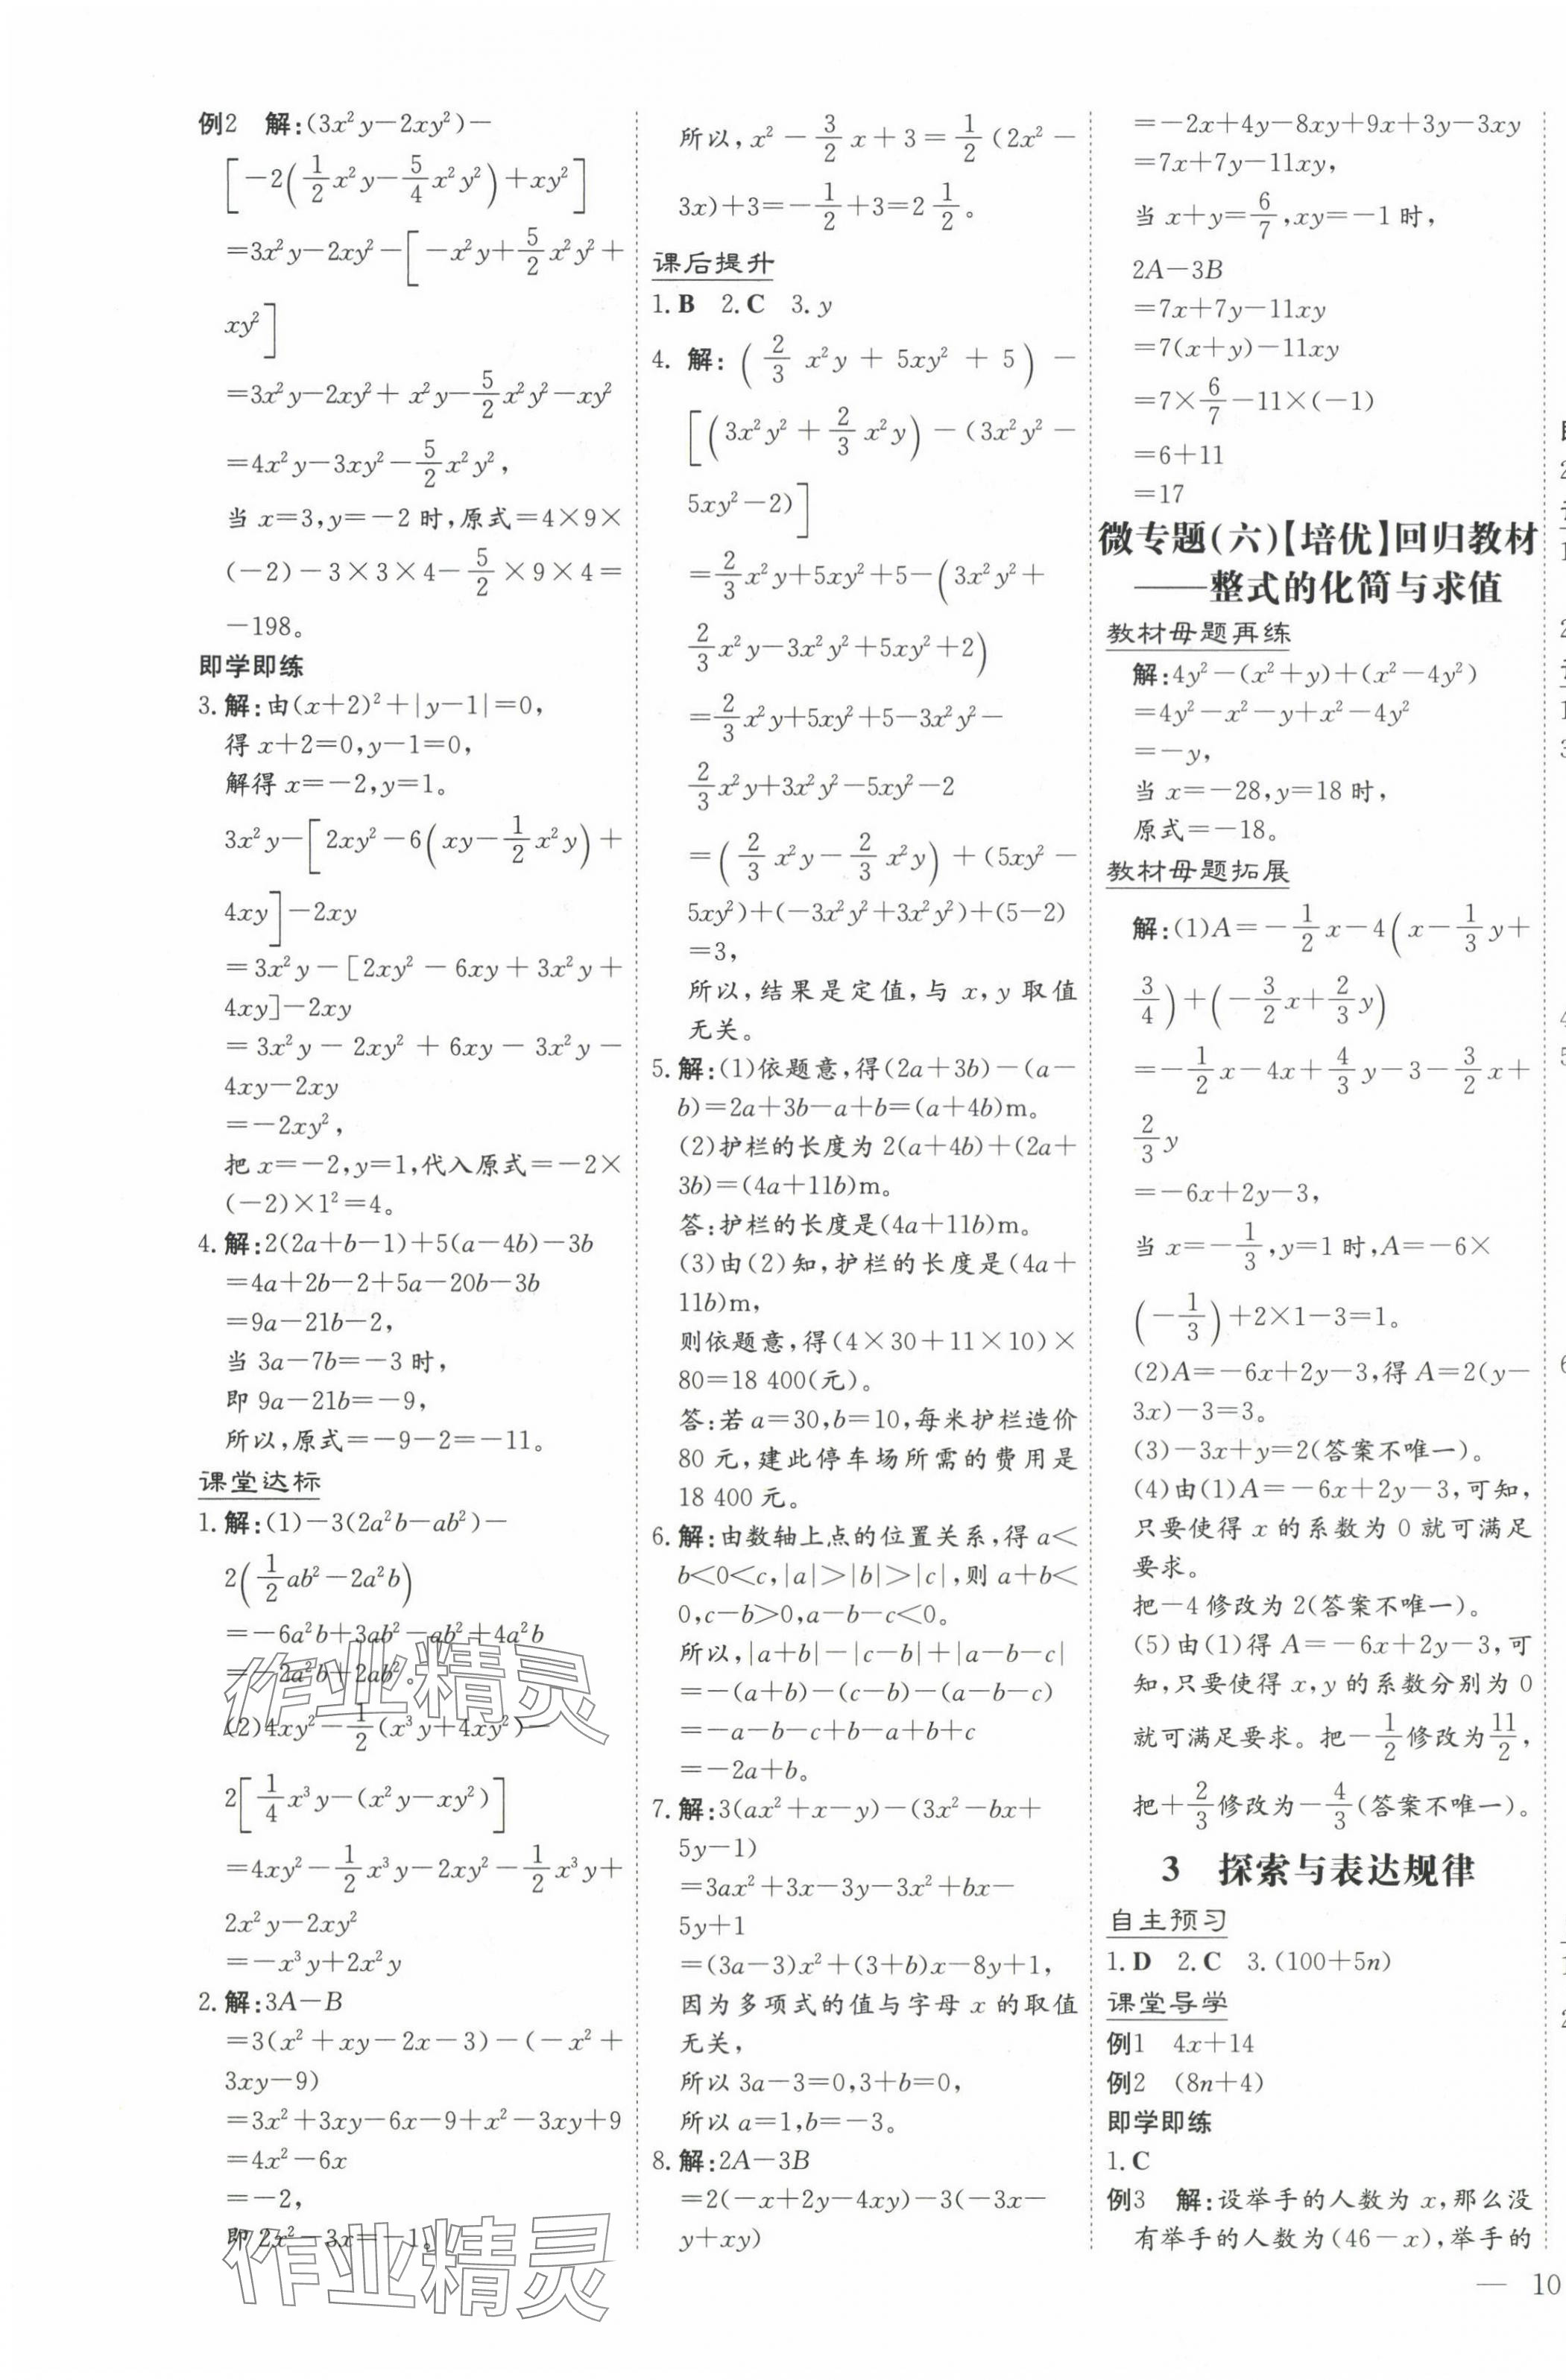 例2 解:(3x²y−2xy²)−
[−2(1/2x²y−5/4x²y²)+xy²]
=3x²y−2xy²−[−x²y+5/2x²y²+
xy²]
=3x²y−2xy²+x²y−5/2x²y²−xy²
=4x²y−3xy²−5/2x²y²,
当 x=3,y=−2 时,原式=4×9×
(−2)−3×3×4−5/2×9×4=
−198。
即学即练
3.解:由(x+2)²+|y−1|=0,
得 x+2=0,y−1=0,
解得 x=−2,y=1。
3x²y−[2xy²−6(xy−1/2x²y)+
4xy]−2xy
=3x²y−[2xy²−6xy+3x²y+
4xy]−2xy
=3x²y−2xy²+6xy−3x²y−
4xy−2xy
=−2xy²,
把 x=−2,y=1,代入原式=−2×
(−2)×1²=4。
4.解:2(2a+b−1)+5(a−4b)−3b
=4a+2b−2+5a−20b−3b
=9a−21b−2,
当 3a−7b=−3 时,
即 9a−21b=−9,
所以,原式=−9−2=−11。
课堂达标
1.解:(1)−3(2a²b−ab²)−
2(1/2ab²−2a²b)
=−6a²b+3ab²−ab²+4a²b
=−2a²b+2ab².
(2)4xy²−1/2(x³y+4xy²)−
2[1/4x³y−(x²y−xy²)]
=4xy²−1/2x³y−2xy²−1/2x³y+
2x²y−2xy²
=−x³y+2x²y
2.解:3A−B
=3(x²+xy−2x−3)−(−x²+
3xy−9)
=3x²+3xy−6x−9+x²−3xy+9
=4x²−6x
=−2,
即 2x²−3x=−1。
所以,x²−3/2x+3=1/2(2x²−
3x)+3=−1/2+3=2 1/2。
课后提升
1.B 2.C 3.y
4.解:(2/3x²y+5xy²+5)−
[(3x²y²+2/3x²y)−(3x²y²−
5xy²−2)]
=2/3x²y+5xy²+5−(3x²y²+
2/3x²y−3x²y²+5xy²+2)
=2/3x²y+5xy²+5−3x²y²−
2/3x²y+3x²y²−5xy²−2
=(2/3x²y−2/3x²y)+(5xy²−
5xy²)+(−3x²y²+3x²y²)+(5−2)
=3,
所以,结果是定值,与 x,y 取值
无关。
5.解:(1)依题意,得(2a+3b)−(a−
b)=2a+3b−a+b=(a+4b)m。
(2)护栏的长度为 2(a+4b)+(2a+
3b)=(4a+11b)m。
答:护栏的长度是(4a+11b)m。
(3)由(2)知,护栏的长度是(4a+
11b)m,
则依题意,得(4×30+11×10)×
80=18 400(元)。
答:若 a=30,b=10,每米护栏造价
80 元,建此停车场所需的费用是
18 400 元。
6.解:由数轴上点的位置关系,得 a<
b<0<c,|a|>|b|>|c|,则 a+b<
0,c−b>0,a−b−c<0。
所以,|a+b|−|c−b|+|a−b−c|
=−(a+b)−(c−b)−(a−b−c)
=−a−b−c+b−a+b+c
=−2a+b。
7.解:3(ax²+x−y)−(3x²−bx+
5y−1)
=3ax²+3x−3y−3x²+bx−
5y+1
=(3a−3)x²+(3+b)x−8y+1,
因为多项式的值与字母 x 的取值
无关,
所以 3a−3=0,3+b=0,
所以 a=1,b=−3。
8.解:2A−3B
=2(−x+2y−4xy)−3(−3x−
y+xy)
=−2x+4y−8xy+9x+3y−3xy
=7x+7y−11xy,
当 x+y=6/7,xy=−1 时,
2A−3B
=7x+7y−11xy
=7(x+y)−11xy
=7×6/7−11×(−1)
=6+11
=17
微专题(六)【培优】回归教材
——整式的化简与求值
教材母题再练
解:4y²−(x²+y)+(x²−4y²)
=4y²−x²−y+x²−4y²
=−y,
当 x=−28,y=18 时,
原式=−18。
教材母题拓展
解:(1)A=−1/2x−4(x−1/3y+
3/4)+(−3/2x+2/3y)
=−1/2x−4x+4/3y−3−3/2x+
2/3y
=−6x+2y−3,
当 x=−1/3,y=1 时,A=−6×
(−1/3)+2×1−3=1。
(2)A=−6x+2y−3,得 A=2(y−
3x)−3=3。
(3)−3x+y=2(答案不唯一)。
(4)由(1)A=−6x+2y−3,可知,
只要使得 x 的系数为 0 就可满足
要求。
把−4 修改为 2(答案不唯一)。
(5)由(1)得 A=−6x+2y−3,可
知,只要使得 x,y 的系数分别为 0
就可满足要求。把−1/2修改为11/2,
把+2/3修改为−4/3(答案不唯一)。
3 探索与表达规律
自主预习
1.D 2.C 3.(100+5n)
课堂导学
例1 4x+14
例2 (8n+4)
即学即练
1.C
例3 解:设举手的人数为 x,那么没
有举手的人数为(46−x),举手的
— 10
作业精灵
作业精灵